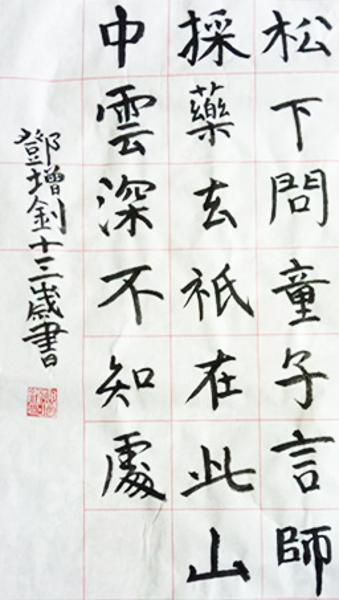 松下問童子言師
採藥去祇在此山
中雲深不知處
鄧增釗十三歲書